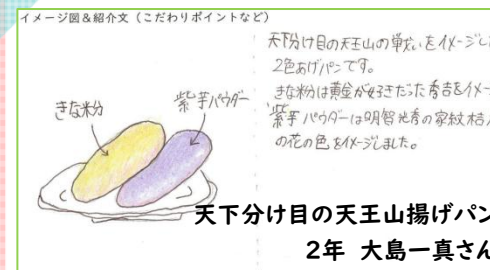 イメージ図＆紹介文（こだわりポイントなど）
天下分け目の天王山の戦いをイメージし
2色あげパンです。
きな粉は黄金が好きだった秀吉をイメー
紫芋パウダーは明智光秀の家紋桔
の花の色をイメージしました。
きな粉
紫芋パウダー
天下分け目の天王山揚げパン
2年 大島一真さん